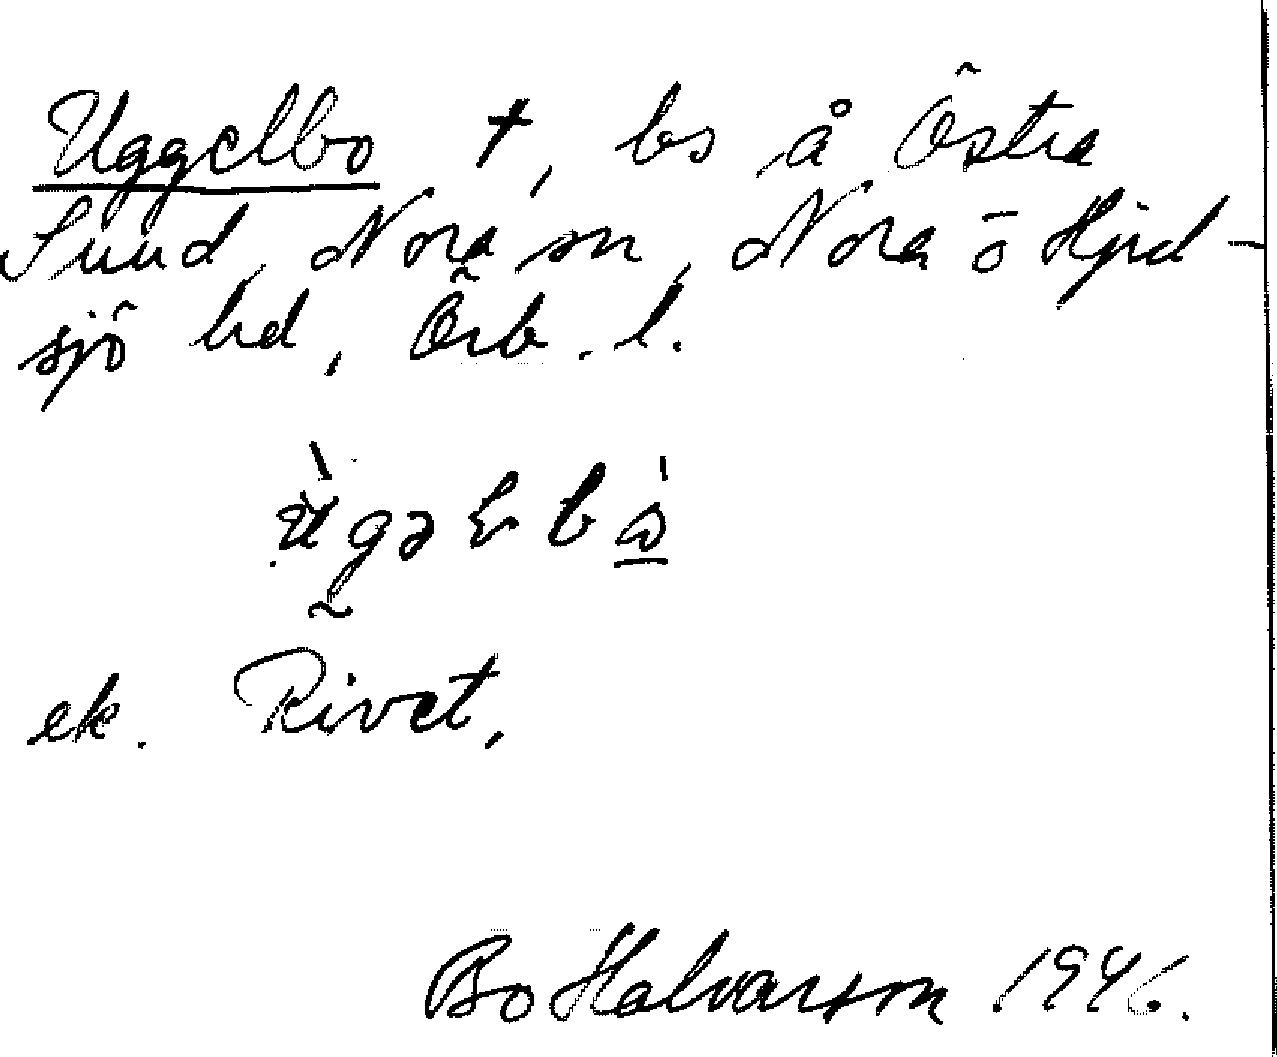 Uggelbo †, bs å Östra
Sund, Nora sn, Nora ō Hjul-
sjö bd, Örb. l.
ek. Rivet,
Bo Halvarson 1946.